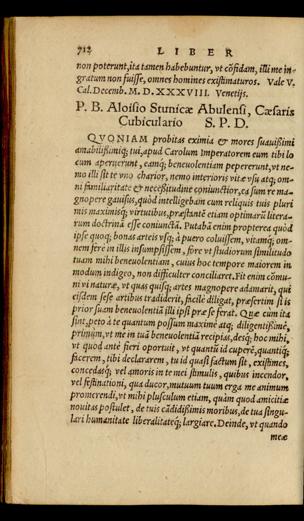 712 LIBER
non poterunt, ita tamen habebuntur, vt cōfidam, illi me in=
gratum non fuisse, omnes homines existimaturos. Vale V.
Cal. Decemb. M. D. XXXVIII. Venetijs.
P. B. Aloisio Stunicæ Abulensi, Cæsaris
Cubiculario S. P. D.
QVONIAM probitas eximia & mores suauissimi
amabilissimiq; tui, apud Carolum Imperatorem eum tibi lo
cum aperuerunt, eamq; beneuolentiam pepererunt, vt ne=
mo illi sit te vno charior, nemo interioris vitæ vsu atq; om=
ni familiaritate & necessitudine coniunctior, ea sum re ma=
gnopere gauisus, quòd intelligebam cum reliquis tuis pluri
mis maximisq; virtutibus, præstantē etiam optimarū litera=
rum doctrinā esse coniunctā. Putabā enim propterea quòd
ipse quoq; bonas arteis vsq; à puero coluissem, vitamq; om=
nem ferè in illis insumpsissem, fore vt studiorum similitudo
tuam mihi beneuolentiam, cuius hoc tempore maiorem in
modum indigeo, non difficulter conciliaret. Fit enim cōmu=
ni vi naturæ, vt quas quisq; artes magnopere adamarit, qui
eisdem sese artibus tradiderit, facilè diligat, præsertim si is
prior suam beneuolentiā illi ipsi præ se ferat. Quæ cum ita
sint, peto à te quantum possum maximè atq; diligentissimè,
primùm, vt me in tuā beneuolentiā recipias, desq; hoc mihi,
vt quod antè fieri oportuit, vt quantū id cuperē, quantiq;
facerem, tibi declararem, tu id quasi factum sit, existimes,
concedasq; vel amoris in te mei stimulis, quibus incendor,
vel festinationi, qua ducor, mutuum tuum erga me animum
promerendi, vt mihi plusculum etiam, quàm quod amicitiæ
nouitas postulet, de tuis cādidissimis moribus, de tua singu=
lari humanitate liberalitateq; largiare. Deinde, vt quando
meæ